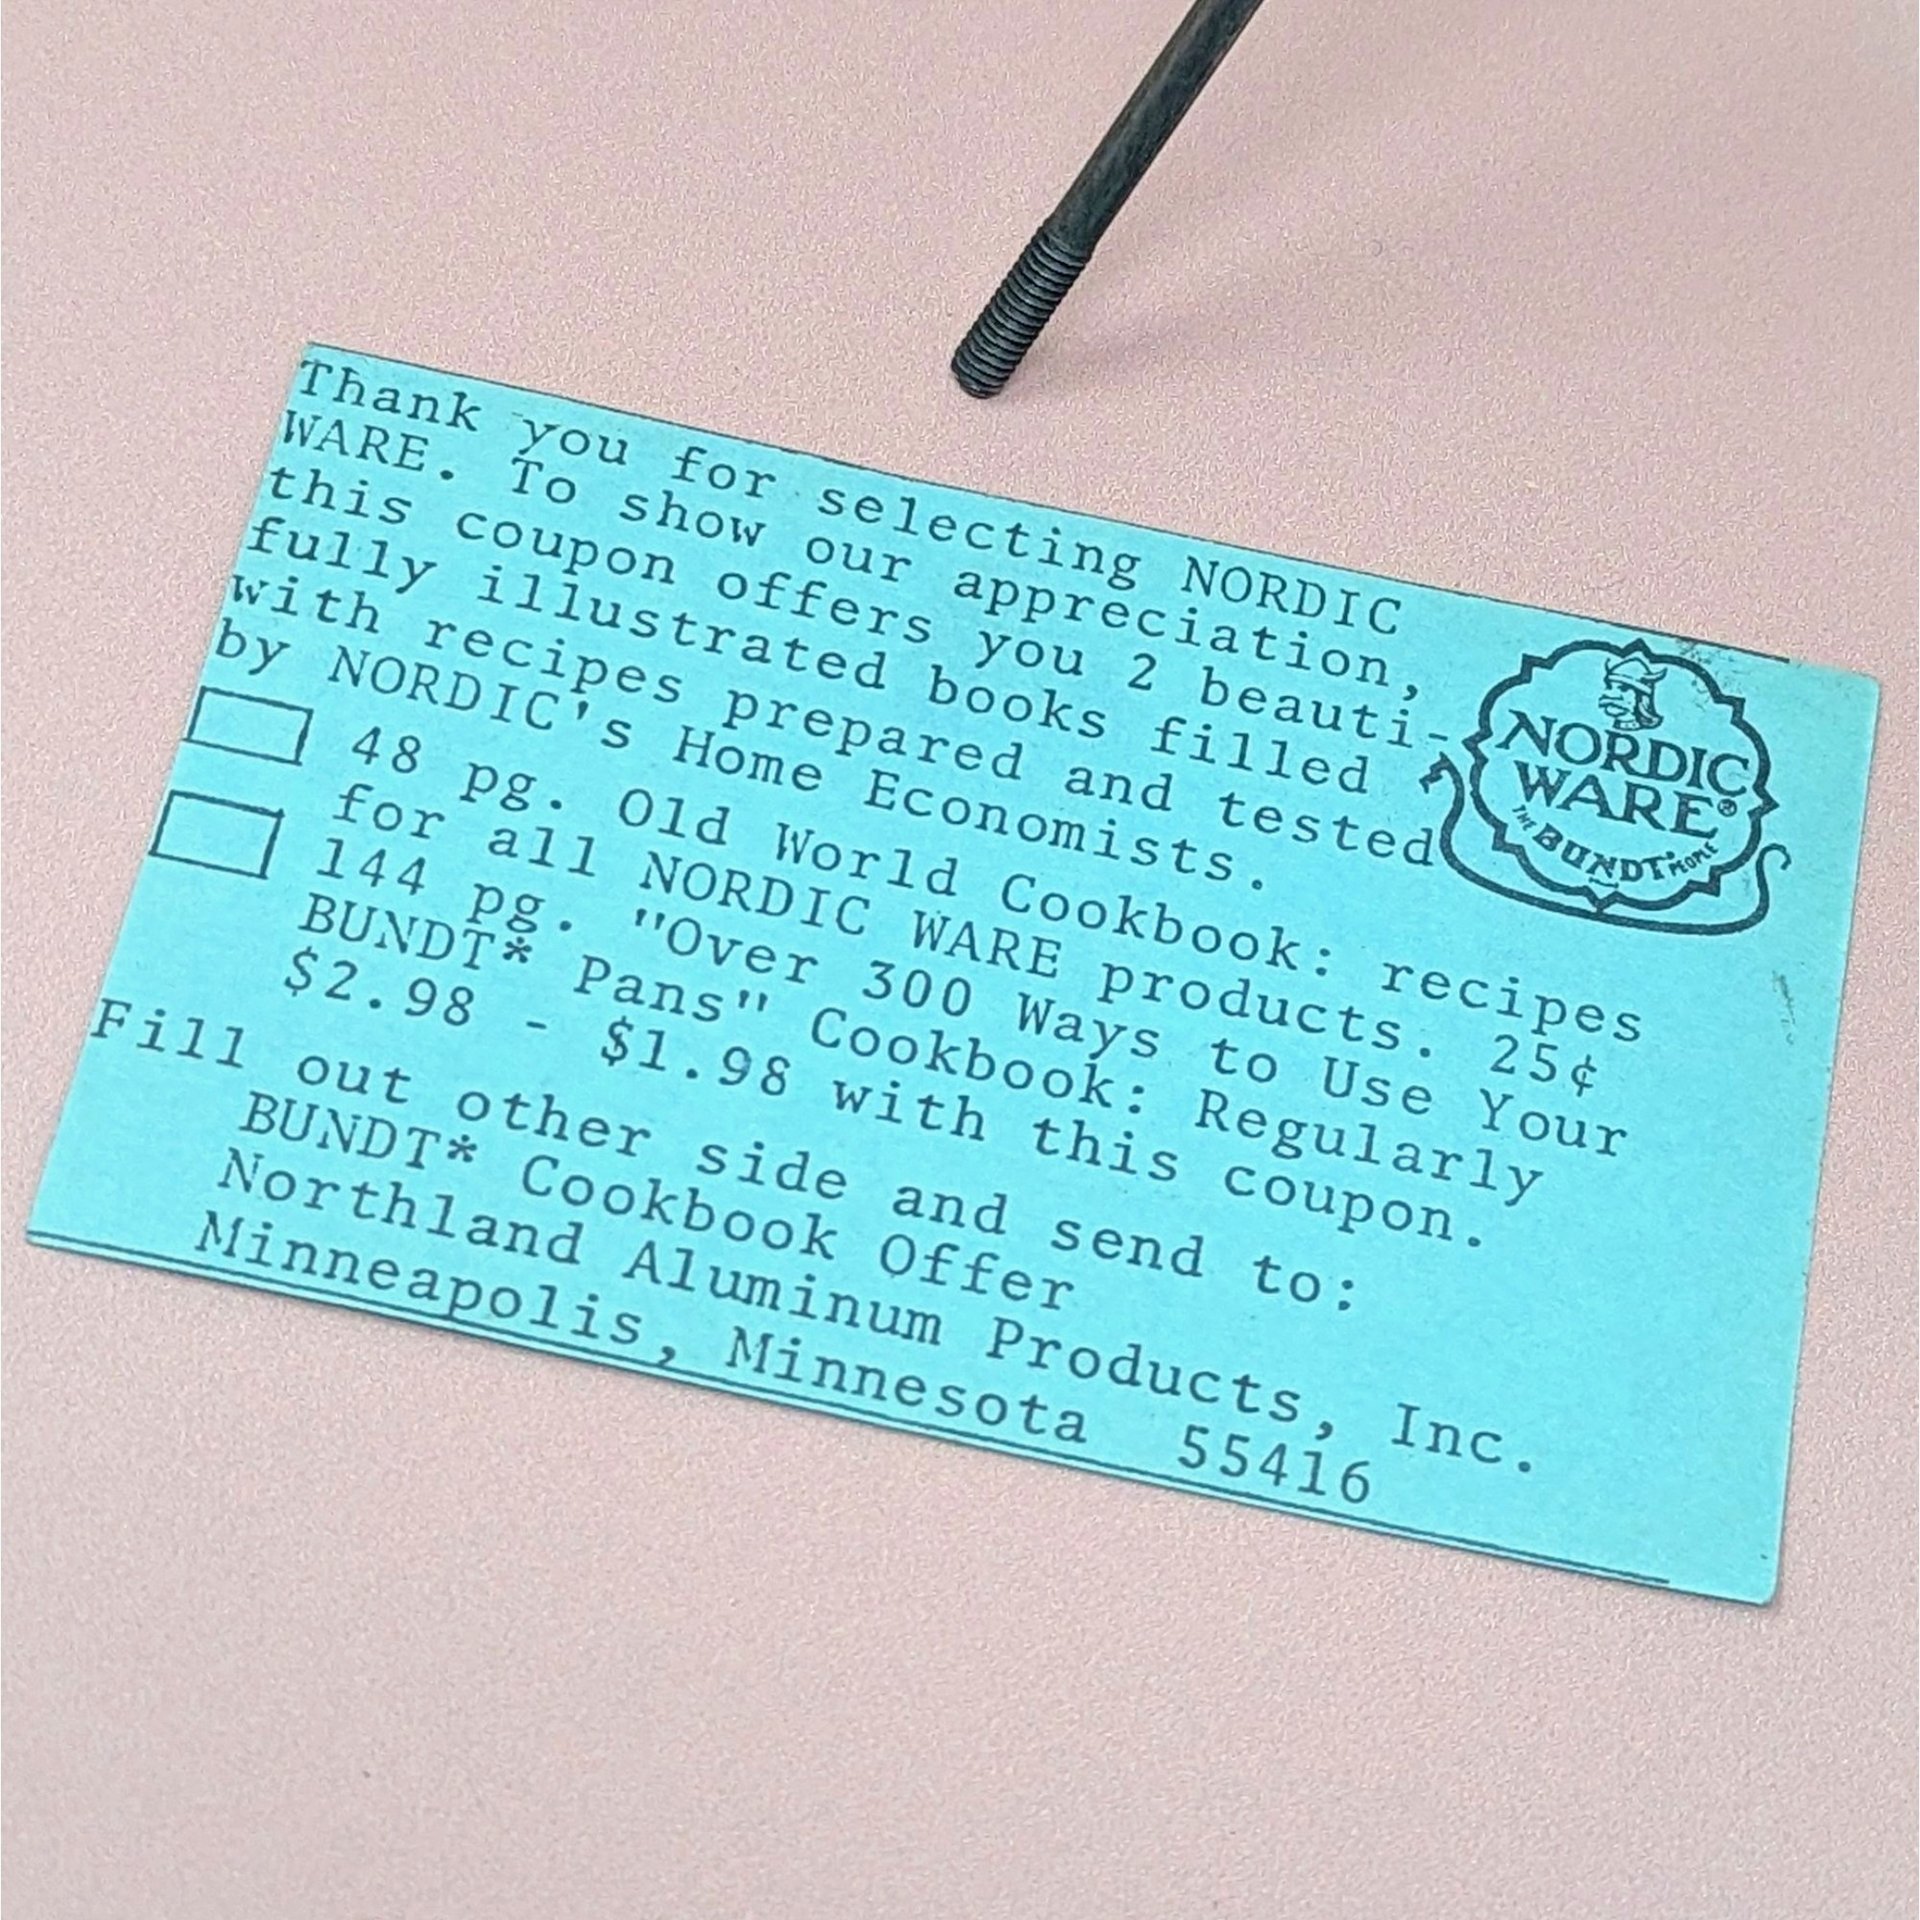 Thank you for selecting NORDIC
WARE. To show our appreciation,
this coupon offers you 2 beauti-
fully illustrated books filled
with recipes prepared and tested
by NORDIC's Home Economists.
48 pg. Old World Cookbook: recipes
for all NORDIC WARE products. 25¢
144 pg. "Over 300 Ways to Use Your
BUNDT* Pans" Cookbook: Regularly
$2.98 - $1.98 with this coupon.
Fill out other side and send to:
BUNDT* Cookbook Offer
Northland Aluminum Products, Inc.
Minneapolis, Minnesota 55416
NORDIC
WARE®
THE BUNDT® PEOPLE